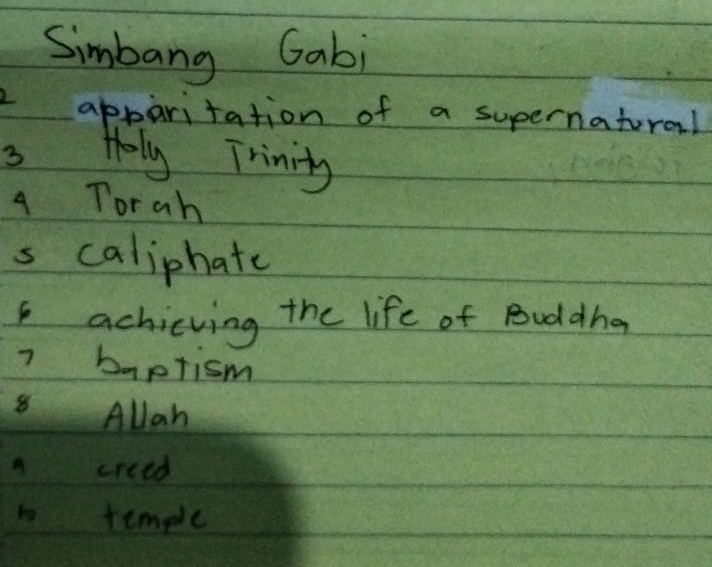 Simbang Gabi
2 apparitation of a supernatural
3 Holy Trinity
4 Torah
5 caliphate
6 achieving the life of Buddha
7 baptism
8 Allah
9 creed
10 temple